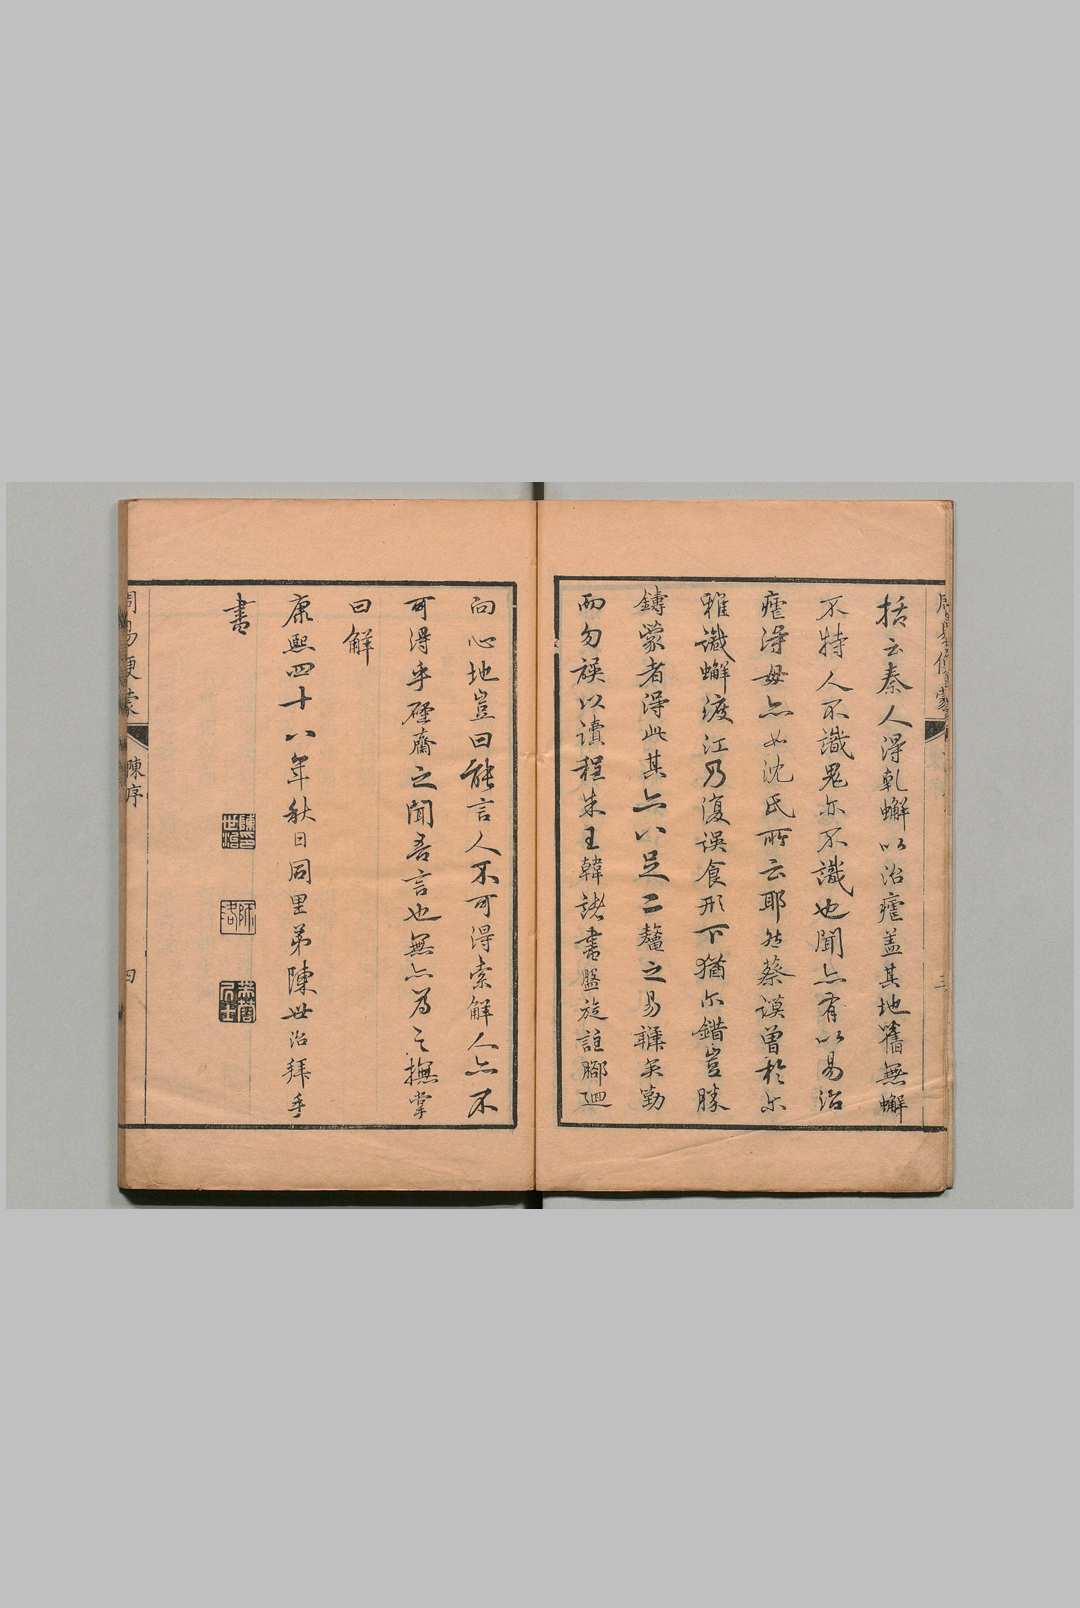 括云秦人得乹蠏以治瘧盖其地舊無蠏
不特人不識鬼亦不識也聞亦有以易治
瘧得毋亦如沈氏所云耶然蔡謨曾於尔
雅識蠏渡江乃復誤食形下猶尔錯豈勝
鑄蒙者得此其亦以足二螯之易讓矣勤
而勿誤以讀程朱王韓諸書盤旋註腳廻
周易便蒙
三
向心地豈曰能言人不可得索解人亦不
可得乎礓齋之聞吾言也無亦为之撫掌
曰解
康熙四十八年秋日同里弟陳世治拜手
書
陳世治印
師洛
周易便蒙
陳序
四